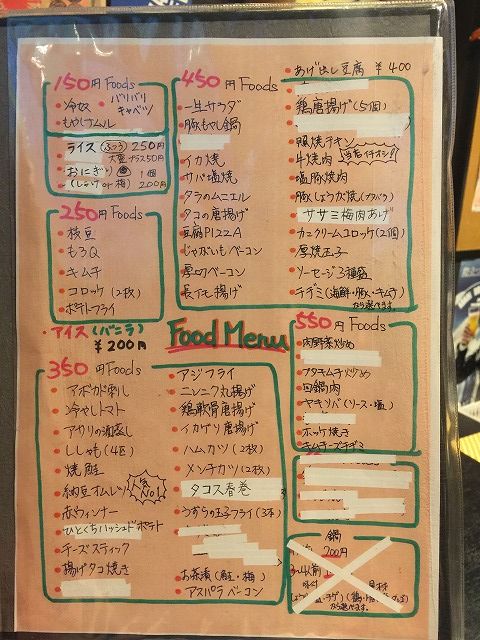 150円Foods
冷奴
バリバリキャベツ
もやしナムル
ライス (ふつう) 250円
大盛 プラス50円
おにぎり 1個
(しゃけ or 梅) 200円
250円Foods
枝豆
もろQ
キムチ
コロッケ (2枚)
ポテトフライ
アイス (バニラ)
¥200円
350円Foods
アボカド刺し
冷やしトマト
アサリの酒蒸し
ししゃも (4匹)
焼鮭
納豆オムレツ
人気No.1
赤ウィンナー
ひとくちハッシュドポテト
チーズスティック
揚げタコ焼き
アジフライ
ニンニク丸揚げ
鶏軟骨唐揚げ
イカゲソ唐揚げ
ハムカツ (2枚)
メンチカツ (2枚)
タコス春巻
うずらの玉子フライ (3本)
お茶漬 (鮭・梅)
アスパラベーコン
450円Foods
豚もやし鍋
イカ焼
サバ塩焼
タラのムニエル
タコの唐揚げ
豆腐PIZZA
じゃがいもベーコン
厚切ベーコン
長イモ揚げ
あげ出し豆腐 ¥400
鶏唐揚げ (5個)
豚焼チキン
牛焼肉
当店イチオシ!
塩豚焼肉
豚しょうが焼
ササミ梅肉あげ
カニクリームコロッケ (2個)
厚焼玉子
ソーセージ3種盛
チヂミ (海鮮・豚・キムチ)
から選べます。
Food Menu
550円Foods
肉野菜炒め
ブタキムチ炒め
回鍋肉
ヤキソバ (ソース・塩)
ホッケ焼き
キムチチーズチヂミ
鍋
200円
3~4人前
から選べます。